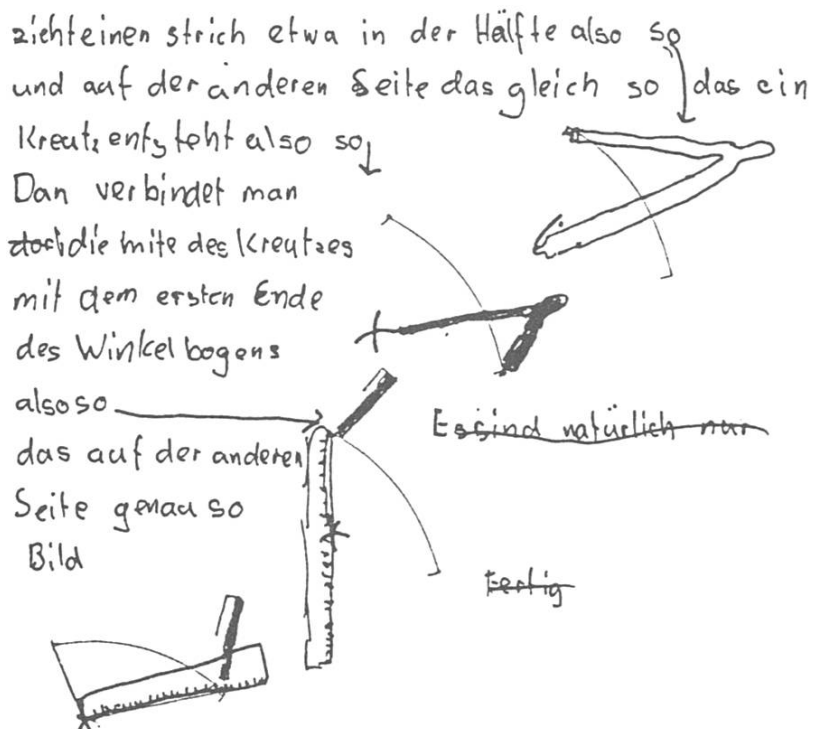 ziehteinen strich etwa in der Hälfte also so
und auf der anderen Seite das gleich so das ein
Kreutz entsteht also so
Dan verbindet man
die mite des Kreutzes
mit dem ersten Ende
des Winkelbogens
also so
Es sind natürlich nur
das auf der anderen
Seite genau so
Bild
Fertig